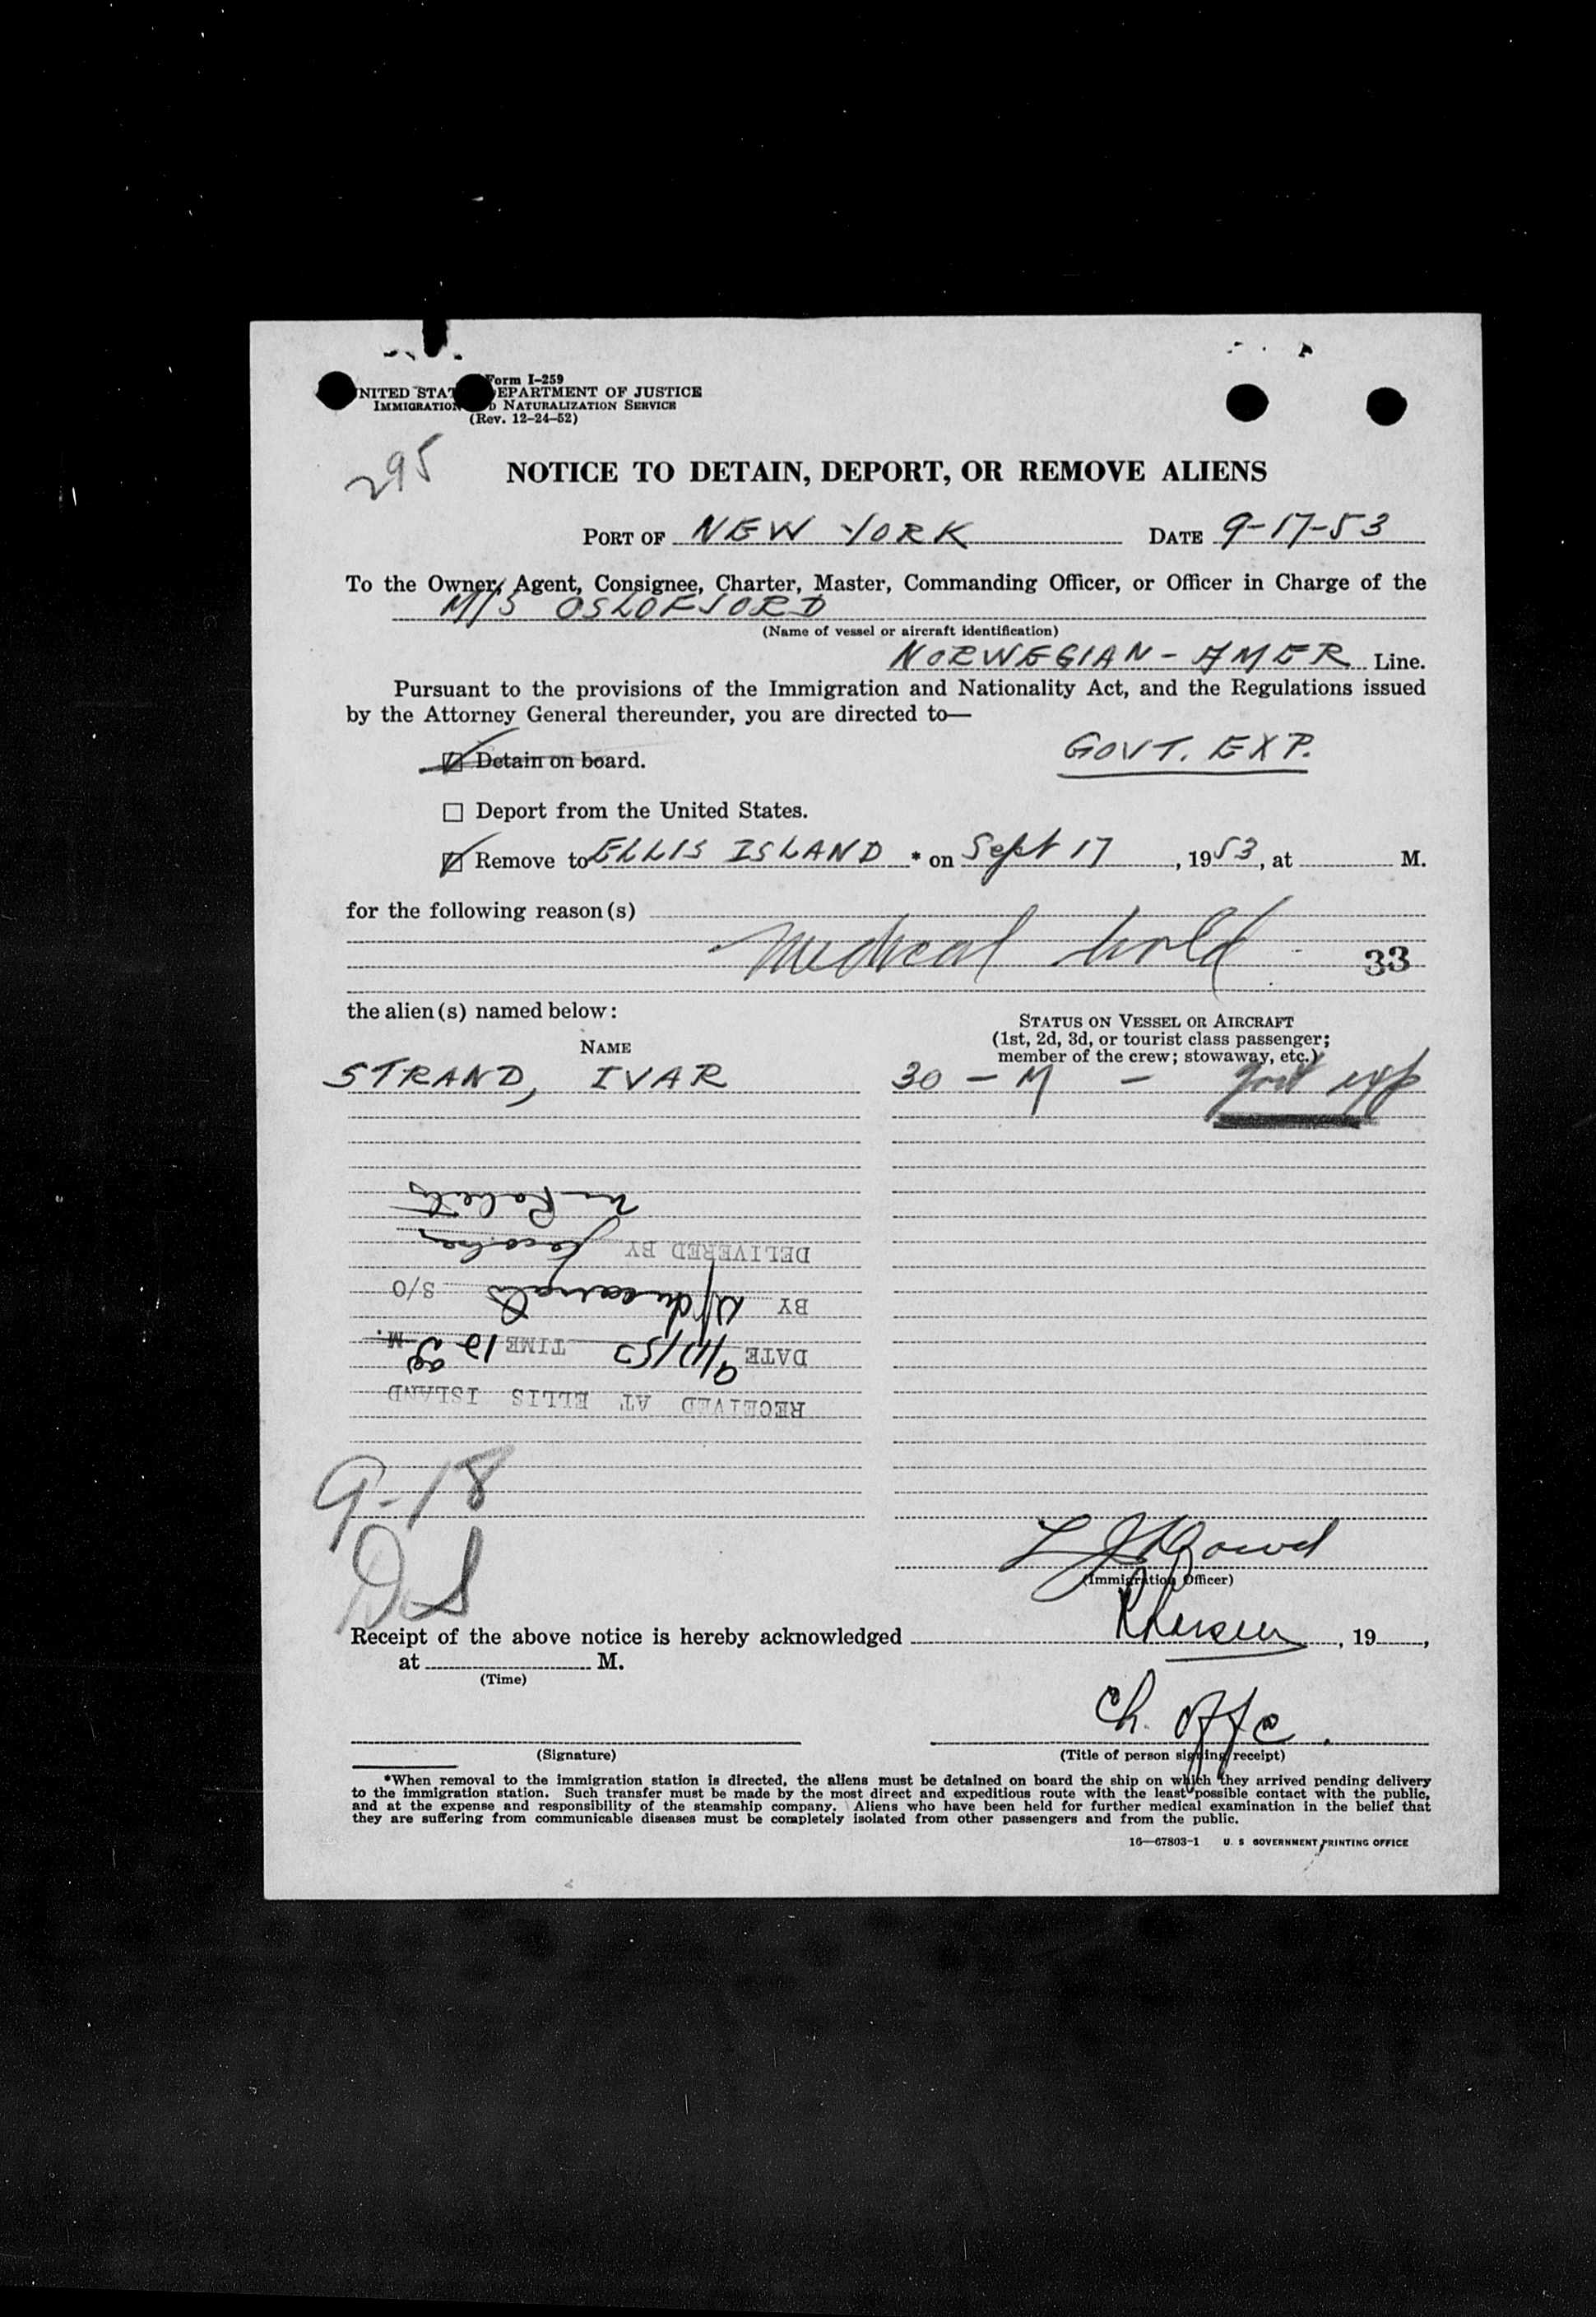 Form I-259
UNITED STATES DEPARTMENT OF JUSTICE
IMMIGRATION AND NATURALIZATION SERVICE
(Rev. 12-24-52)
295
NOTICE TO DETAIN, DEPORT, OR REMOVE ALIENS
PORT OF NEW YORK DATE 9-17-53
To the Owner, Agent, Consignee, Charter, Master, Commanding Officer, or Officer in Charge of the
M/S OSLOFJORD
(Name of vessel or aircraft identification)
NORWEGIAN-AMER Line.
Pursuant to the provisions of the Immigration and Nationality Act, and the Regulations issued
by the Attorney General thereunder, you are directed to—
Detain on board. GOVT. EXP.
Deport from the United States.
Remove to ELLIS ISLAND * on Sept 17, 1953, at M.
for the following reason(s)
medical hold 33
the alien(s) named below:
NAME
STATUS ON VESSEL OR AIRCRAFT
(1st, 2d, 3d, or tourist class passenger;
member of the crew; stowaway, etc.)
STRAND, IVAR 30 - M - govt exp
RECEIVED AT ELLIS ISLAND
DATE 9/17/53 TIME 12 M.
BY S/O
DELIVERED BY
9-18
DS
(Immigration Officer)
Receipt of the above notice is hereby acknowledged , 19 ,
at M.
(Time)
ch. offc.
(Signature) (Title of person signing receipt)
*When removal to the immigration station is directed, the aliens must be detained on board the ship on which they arrived pending delivery
to the immigration station. Such transfer must be made by the most direct and expeditious route with the least possible contact with the public,
and at the expense and responsibility of the steamship company. Aliens who have been held for further medical examination in the belief that
they are suffering from communicable diseases must be completely isolated from other passengers and from the public.
16—67803-1 U. S GOVERNMENT PRINTING OFFICE